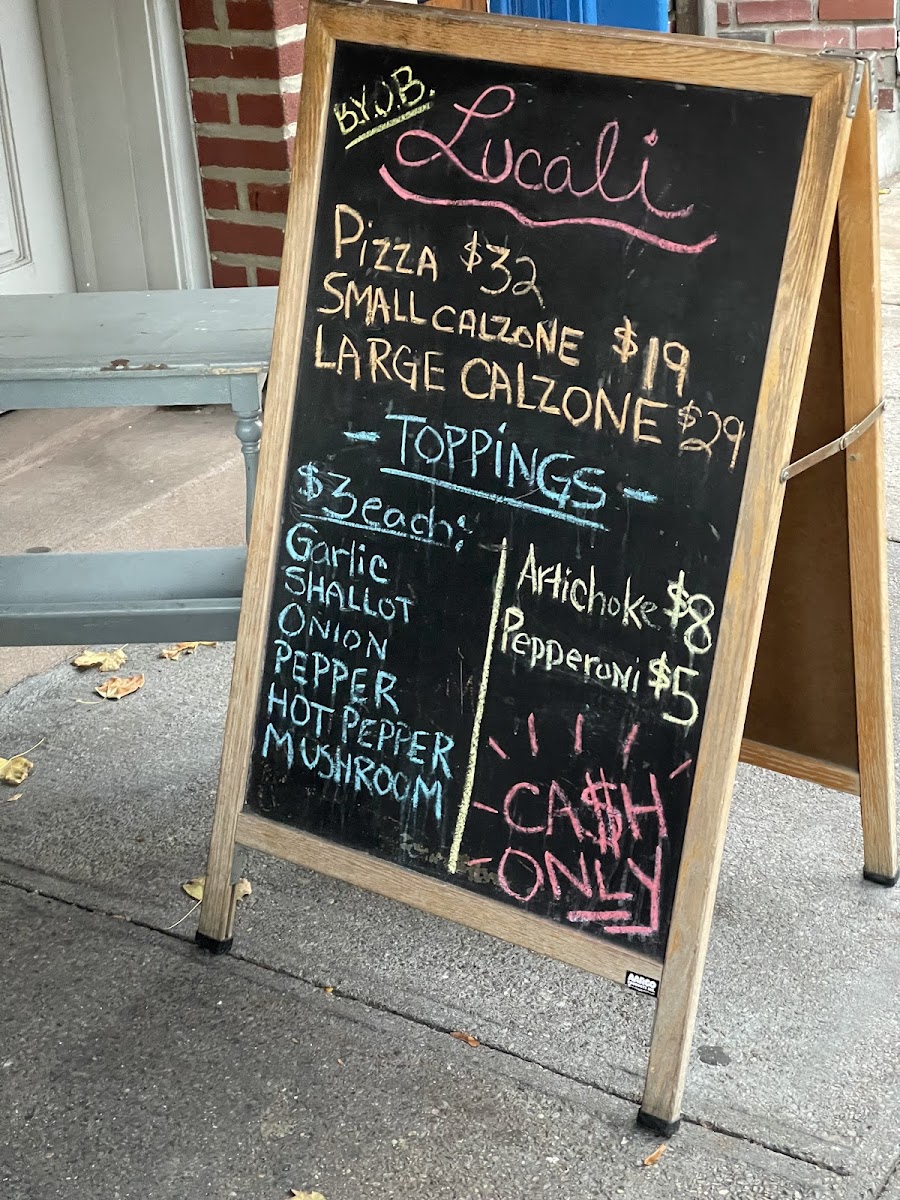 B.Y.O.B.
Lucali
PIZZA $32
SMALL CALZONE $19
LARGE CALZONE $29
- TOPPiNGS -
$3 each:
Garlic
SHALLOT
ONION
PEPPER
HOT PEPPER
MUSHROOM
Artichoke $8
Pepperoni $5
CA$H
ONLY
AARCO